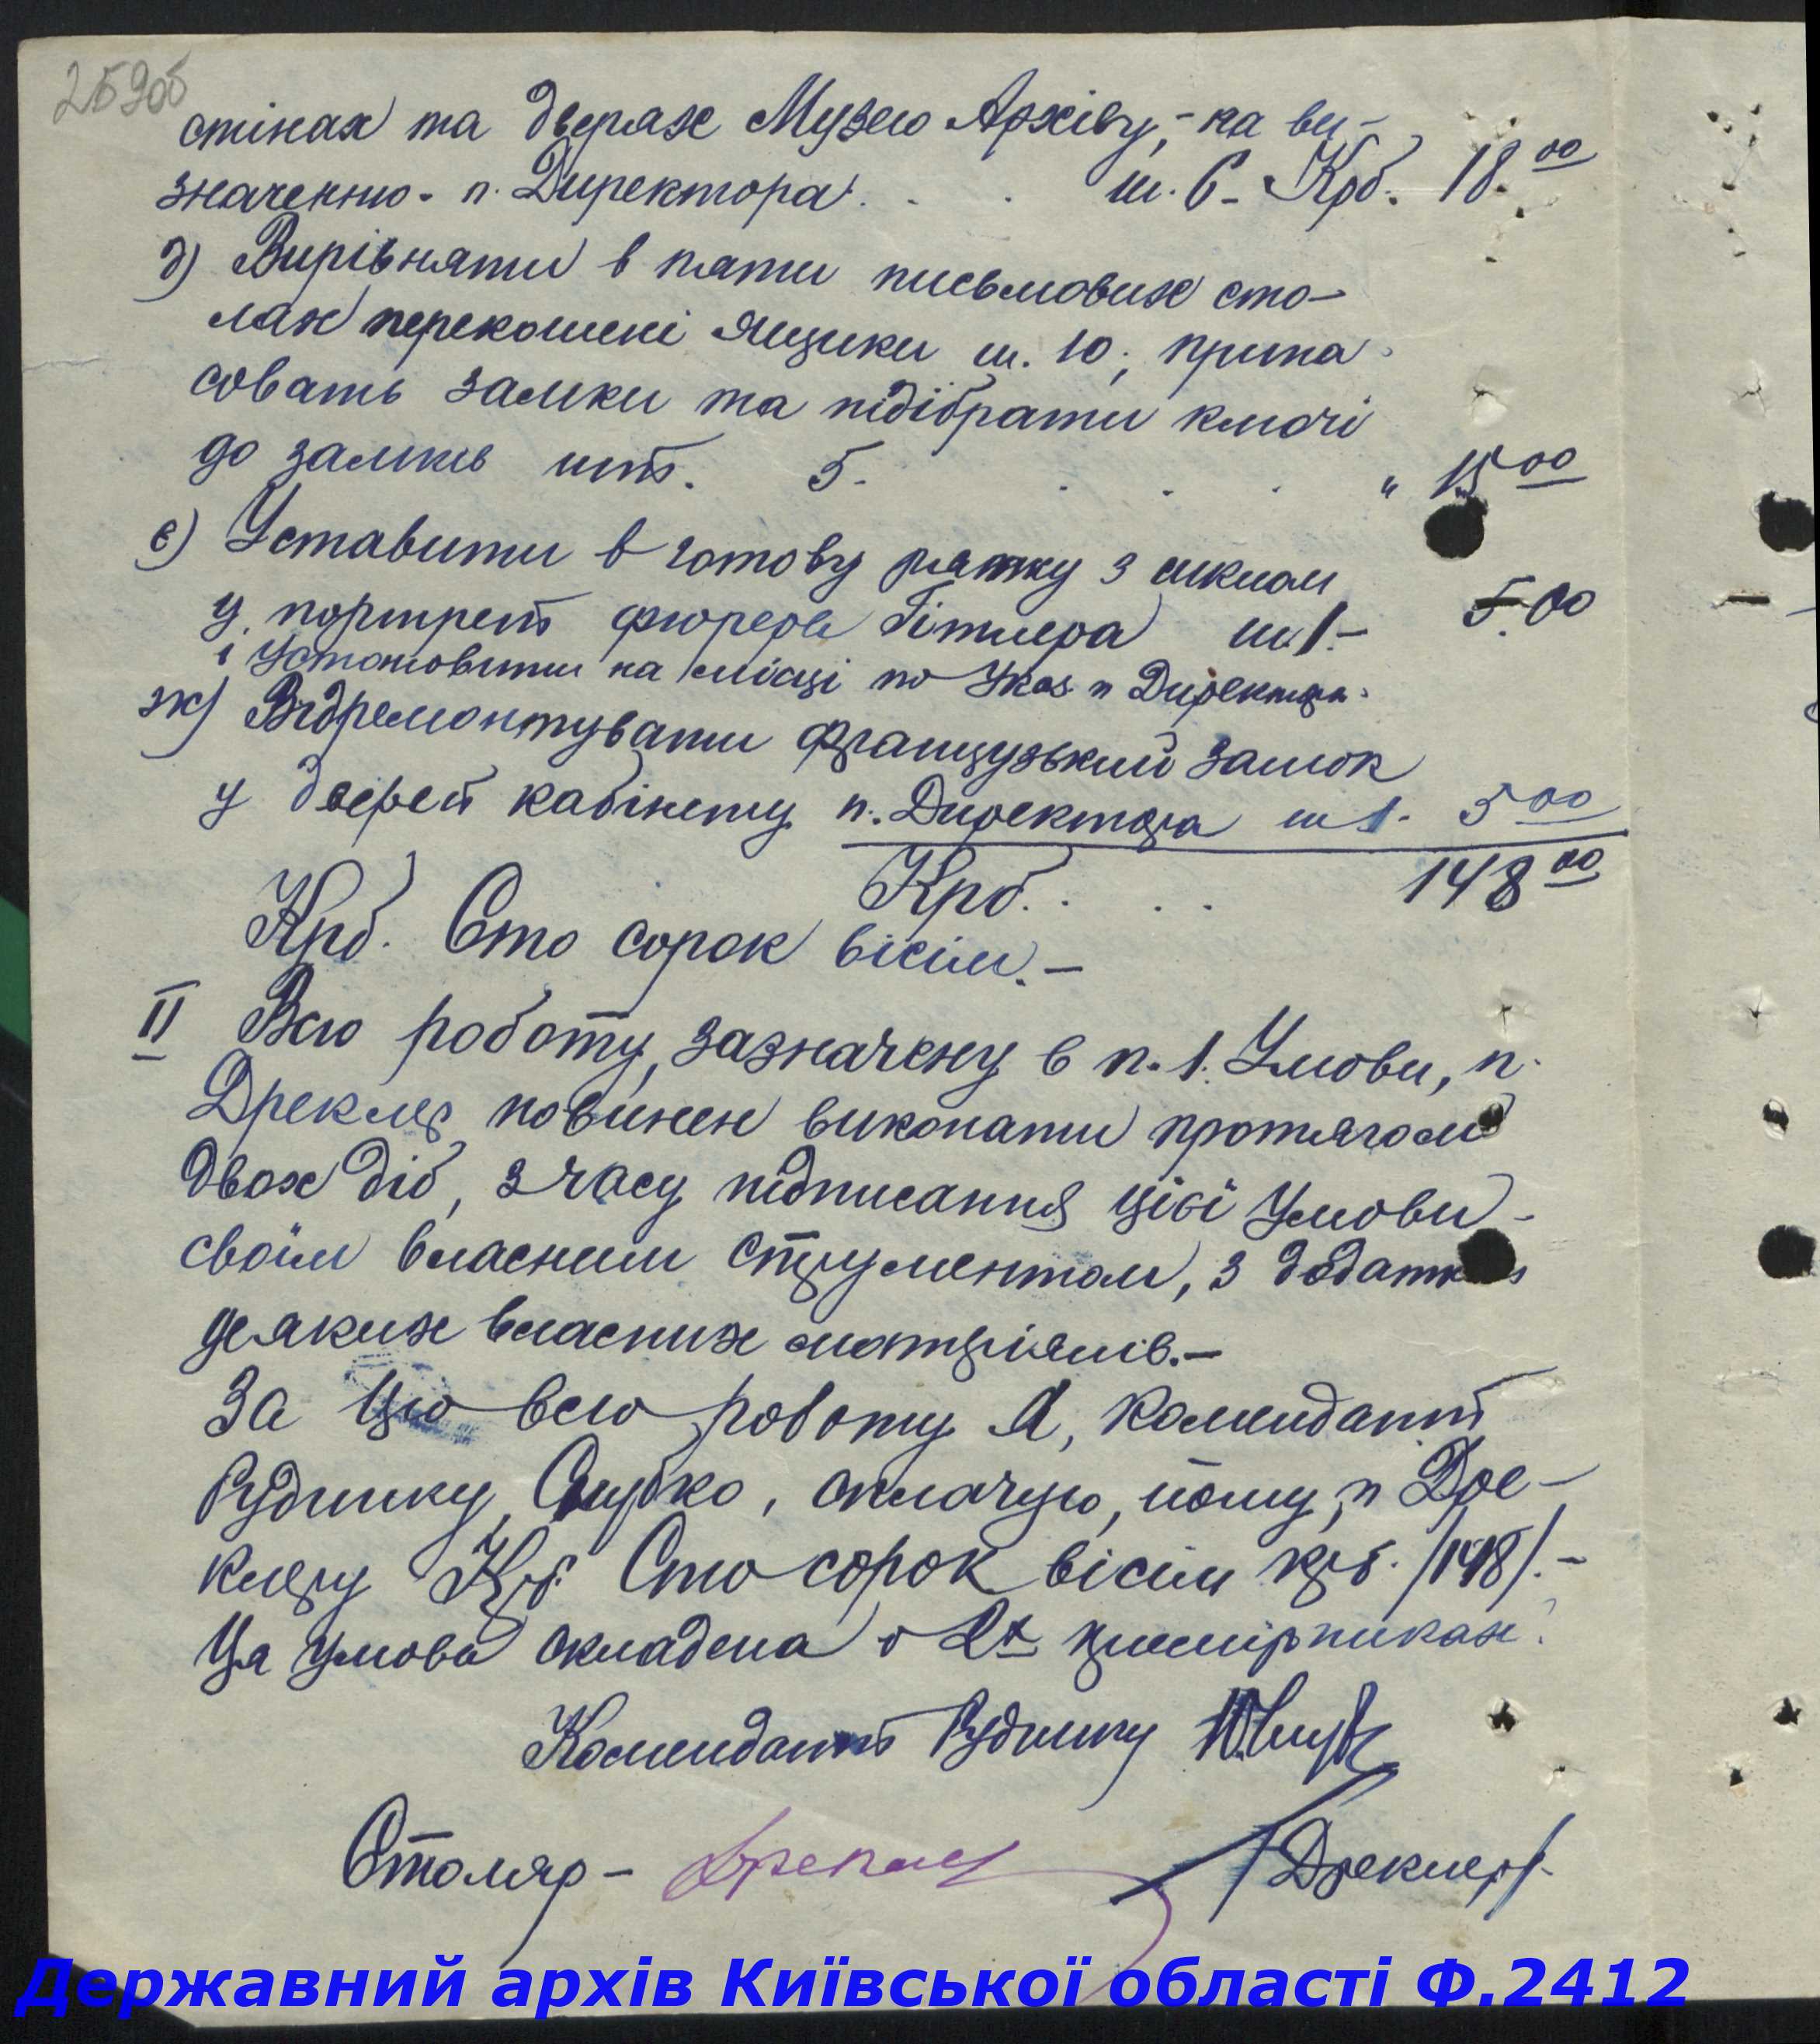 259об
стінах та дверях Музею Архіву, - на ви-
значенню - п. Директора . . . ш. 6 - Крб. 18.00
д) Вирівняти в пяти письмових сто-
лах перекошені ящики ш. 10; припа-
совать замки та підібрати ключі
до замків шт. 5. . . . " 15 00
е) Уставити в готову рямку з шклом
у. портрет фюрера Гітлера ш. 1. - 5.00
і Установити на місці по Указ. п Директора.
ж) Відремонтувати французький замок
у дверей кабінету п. Директора ш 1. 5 00
Крб. . . . 148 00
Крб. Сто сорок вісім. -
II Всю роботу, зазначену в п. 1. Умови, п.
Дреклер повинен виконати протягом
двох діб, з часу підписання цієї Умови -
своїм власним струментом, з додатком
деяких власних матеріялів. -
За цю всю роботу Я, комендант
Будинку, оплачую, йому, п Дре-
клеру Крб. Сто сорок вісім крб. /148/. -
Ця умова складена в 2х примірниках.
Комендант Будинку
Столяр - Дреклер /Дреклер/.
Державний архів Київської області Ф.2412